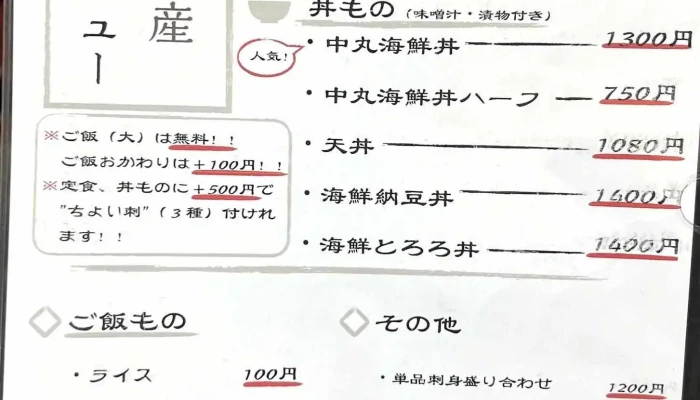 産
ュー
丼もの（味噌汁・漬物付き）
人気！
・中丸海鮮丼 1300円
・中丸海鮮丼ハーフ 750円
・天丼 1080円
・海鮮納豆丼 1400円
・海鮮とろろ丼 1400円
※ご飯（大）は無料！！
ご飯おかわりは＋100円！！
※定食、丼ものに＋500円で
"ちょい刺"（３種）付けれ
ます！！
ご飯もの
・ライス 100円
その他
・単品刺身盛り合わせ 1200円